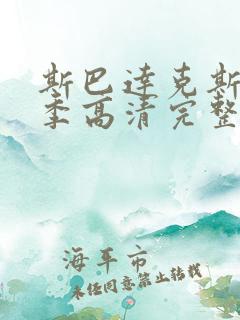 斯巴达克斯
季高清完整
海平市
未经同意禁止转载